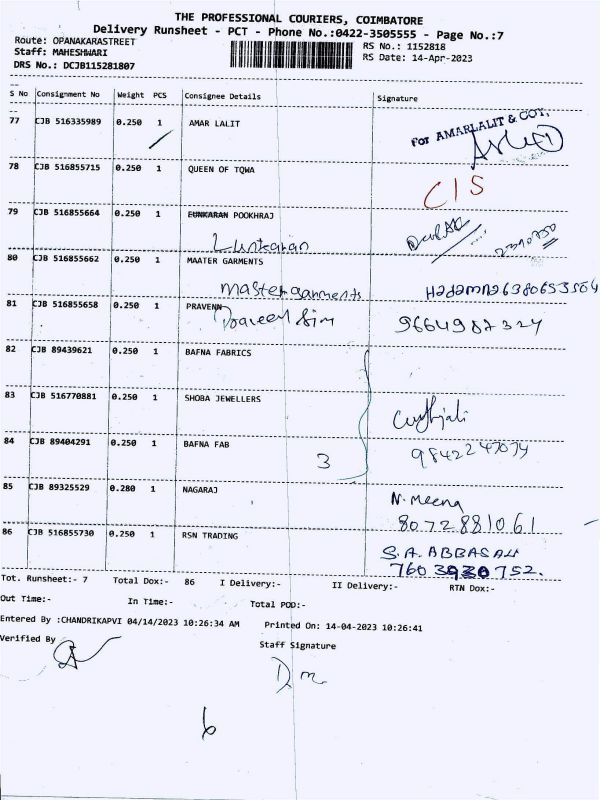 THE PROFESSIONAL COURIERS, COIMBATORE
Delivery Runsheet - PCT - Phone No.:0422-3505555 - Page No.:7
Route: OPANAKARASTREET RS No.: 1152818
Staff: MAHESHWARI RS Date: 14-Apr-2023
DRS No.: DCJB115281807
S No Consignment No Weight PCS Consignee Details Signature
77 CJB 516335989 0.250 1 AMAR LALIT
For AMARLALIT & COY,
78 CJB 516855715 0.250 1 QUEEN OF TQWA
CIS
79 CJB 516855664 0.250 1 EUNKARAN POOKHRAJ
Lunkaran
80 CJB 516855662 0.250 1 MAATER GARMENTS
Master garments
81 CJB 516855658 0.250 1 PRAVENN
9664987324
82 CJB 89439621 0.250 1 BAFNA FABRICS
83 CJB 516770881 0.250 1 SHOBA JEWELLERS
84 CJB 89404291 0.250 1 BAFNA FAB
3
85 CJB 89325529 0.280 1 NAGARAJ
N. Meena
8072881061
86 CJB 516855730 0.250 1 RSN TRADING
S.A. ABBASALI
7603930752.
Tot. Runsheet:- 7 Total Dox:- 86 I Delivery:- II Delivery:- RTN Dox:-
Out Time:- In Time:- Total POD:-
Entered By :CHANDRIKAPVI 04/14/2023 10:26:34 AM Printed On: 14-04-2023 10:26:41
Verified By Staff Signature
6